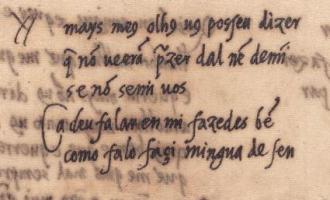 mays meg olhg ug posseu dizer
q̃ nõ ueerã p̃zer dal nẽ demĩ
se nõ semi uos
Ca deu falar en mi fazedes bẽ
como falo faç mingua de sen